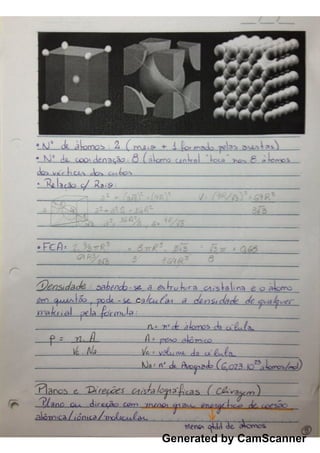 • Nº de átomos: 2 (meio + 1 formado pelas arestas)
• Nº de coordenação: 8 (átomo central "toca" nos 8 átomos
dos vértices do cubo)
• Relação c/ Raio:
3√3
• FCA =
= 0,68
Densidade: sabendo-se a estrutura cristalina e o átomo
em questão, pode-se calcular a densidade de qualquer
material pela fórmula:
n = nº de átomos da célula
ρ = n. A
A = peso atômico
Vc . Na
Vc = volume da célula
Na = nº de Avogadro (6,023.10²³ átomos/mol)
Planos e Direções cristalográficas (Clivagem)
Plano ou direção com menor grau energético de coesão
atômica/iônica/molecular
menor qtdd de átomos
Generated by CamScanner